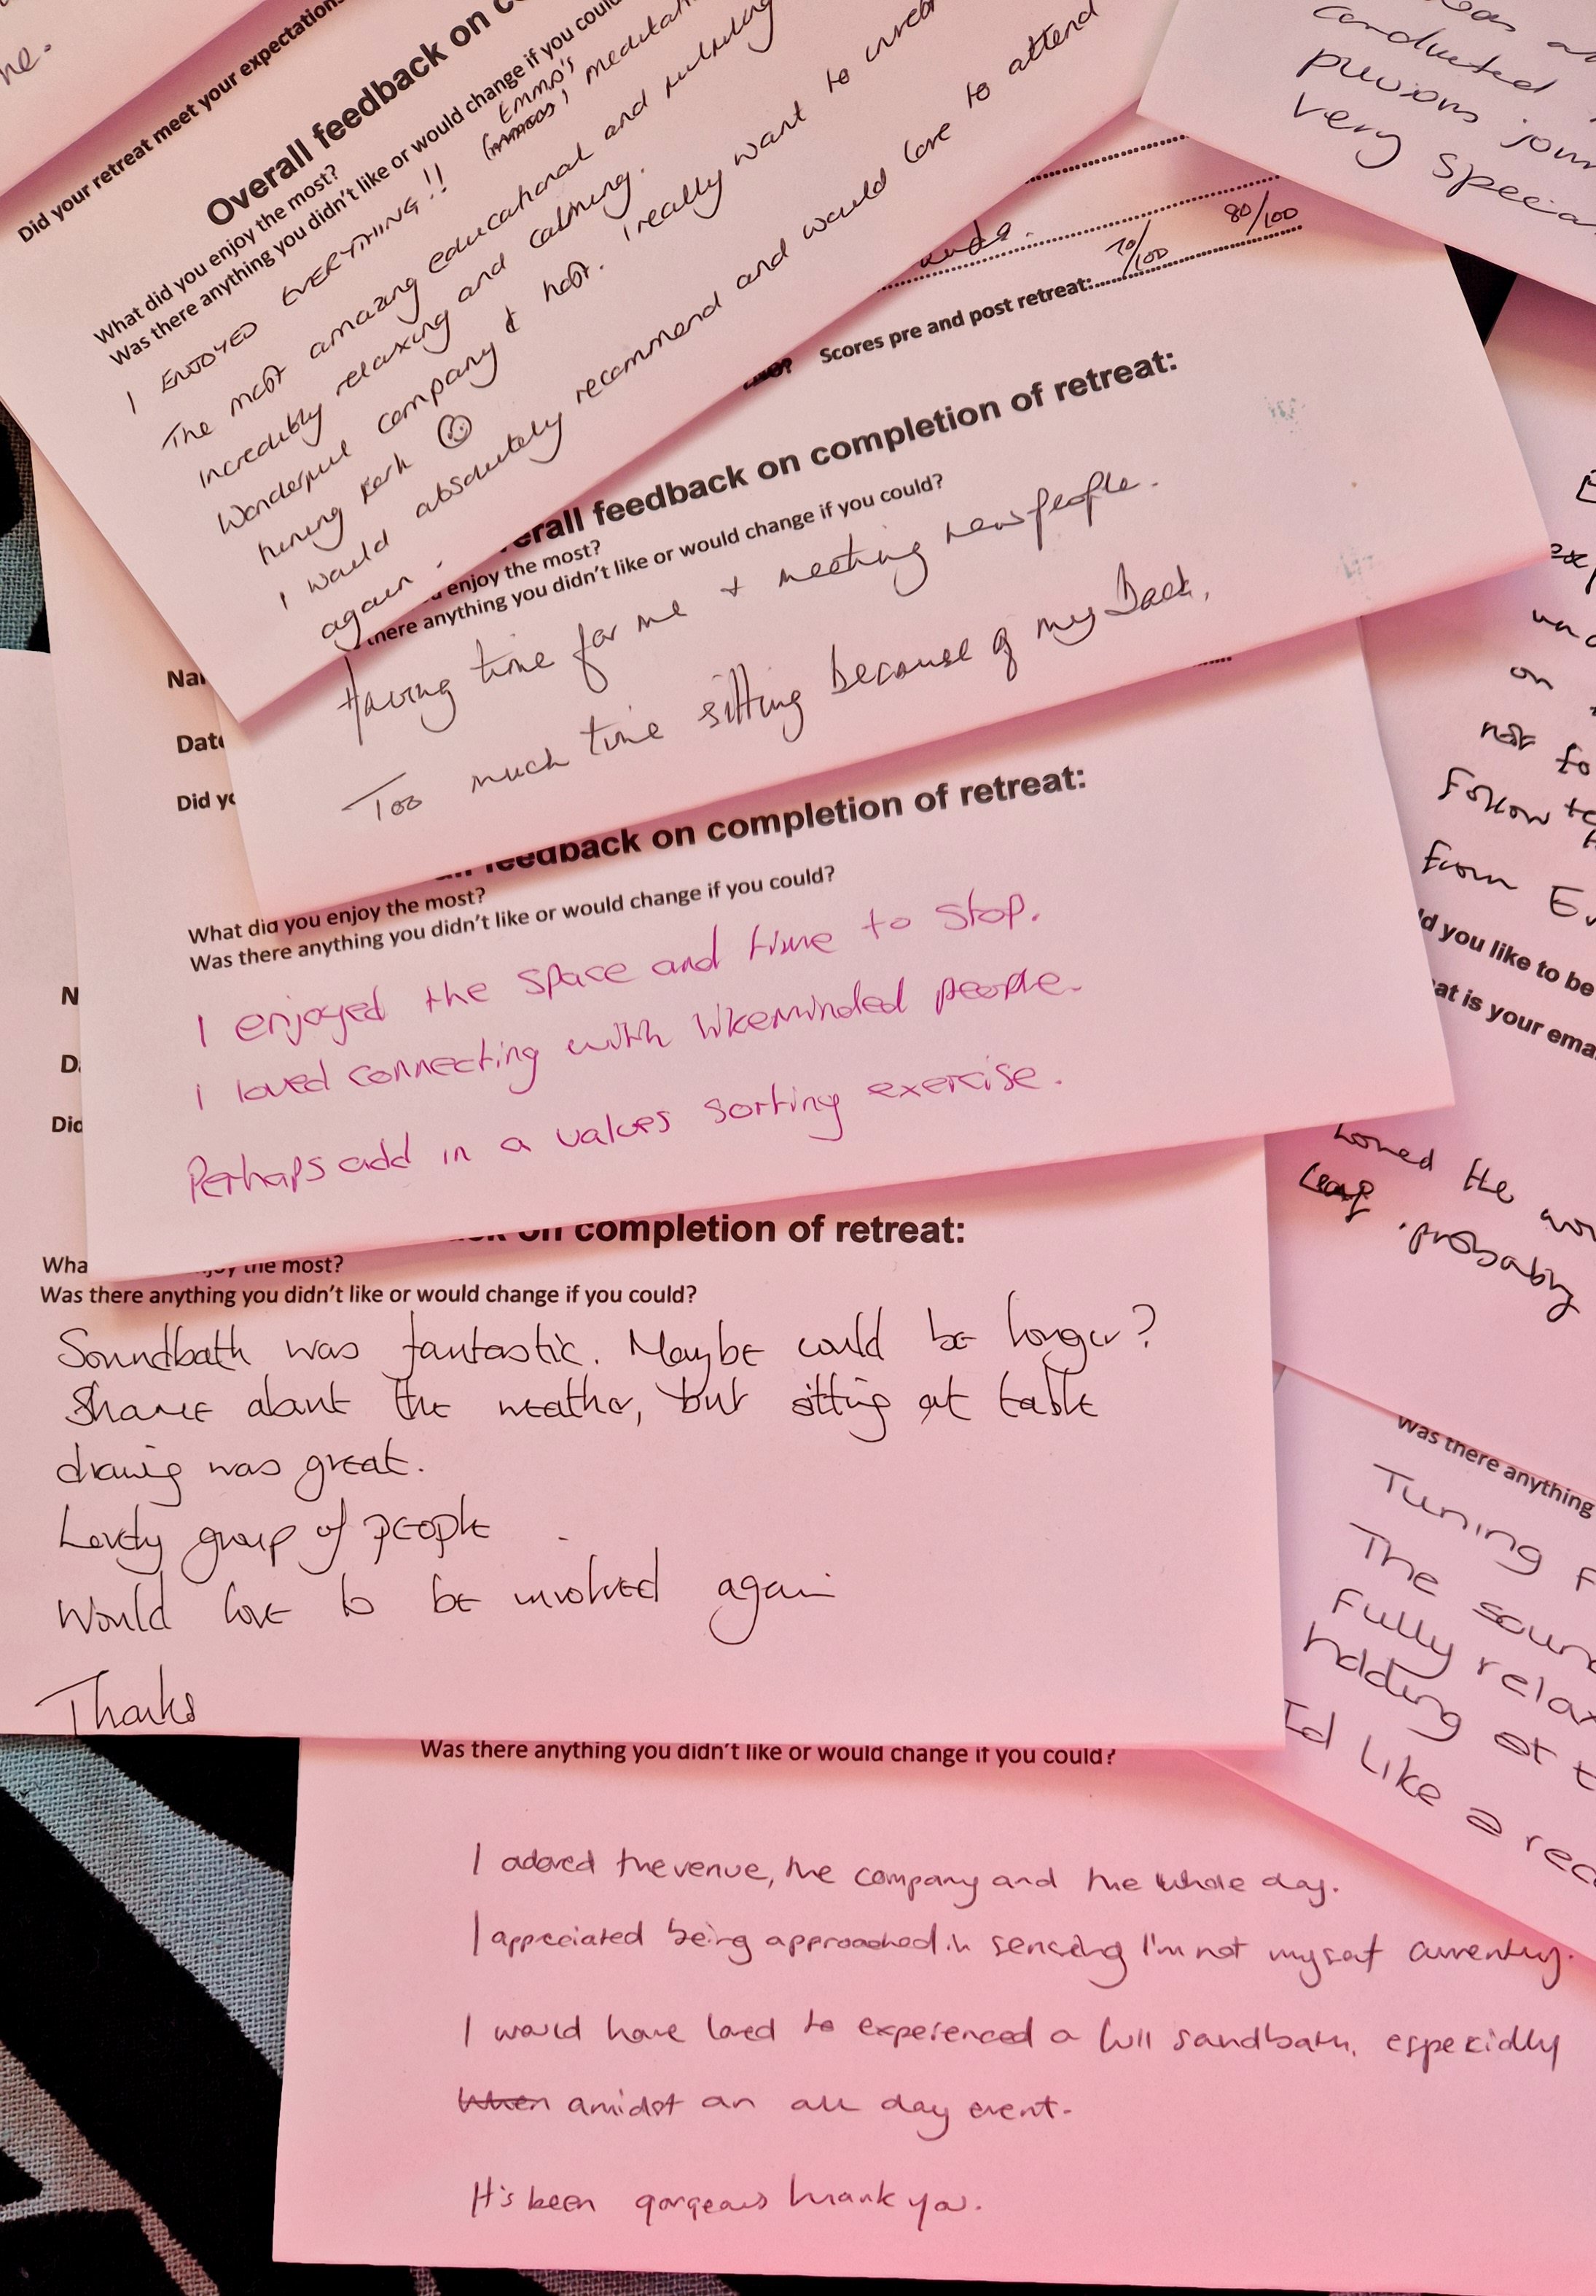 ne.
Did your retreat meet your expectations
Overall feedback on
What did you enjoy the most?
Was there anything you didn't like or would change if you could
I ENJOYED EVERYTHING!! (EMMA'S meditat
The most amazing educational and
incredibly relaxing and calming.
Wonderful company & host. I really want to
tuning fork
I would absolutely recommend and would love to attend
again.
was
conducted
previous journ
very specia
Scores pre and post retreat: 70/100 80/100
erall feedback on completion of retreat:
enjoy the most?
there anything you didn't like or would change if you could?
Having time for me + meeting new people.
Too much time sitting because of my back.
Nar
Date
Did yo
feedback on completion of retreat:
What did you enjoy the most?
Was there anything you didn't like or would change if you could?
I enjoyed the space and time to stop.
I loved connecting with likeminded people.
Perhaps add in a values sorting exercise.
N
D
Did
on completion of retreat:
Wha joy the most?
Was there anything you didn't like or would change if you could?
Soundbath was fantastic. Maybe could be longer?
Shame about the weather, but sitting at table
drawing was great.
Lovely group of people
Would love to be involved again
Thanks
Was there anything you didn't like or would change if you could?
I adored the venue, the company and the whole day.
I appreciated being approached in sensing I'm not myself currently.
I would have loved to experienced a full sandbath, especially
When amidst an all day event.
It's been gorgeous thank you.
exp
on
not to
Follow
From E
ld you like to be
at is your ema
Loved the wo
probably
Was there anything
Tuning F
The soun
Fully relax
holding at t
Id like a rec